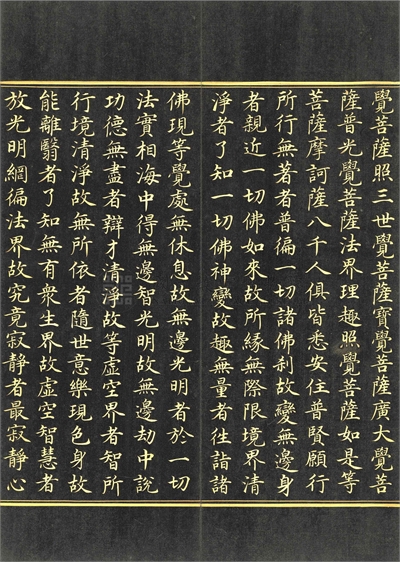 覺菩薩照三世覺菩薩寶覺菩薩廣大覺菩
薩普光覺菩薩法界理趣照覺菩薩如是等
菩薩摩訶薩八千人俱皆悉安住普賢願行
所行無著者普徧一切諸佛刹故變無邊身
者親近一切佛如來故所緣無際限境界清
淨者了知一切佛神變故趣無量者徃詣諸
佛現等覺處無休息故無邊光明者於一切
法實相海中得無邊智光明故無邊劫中說
功德無盡者辯才清淨故等虛空界者智所
行境清淨故無所依者隨世意樂現色身故
能離翳者了知無有衆生界故虛空智慧者
放光明網徧法界故究竟寂靜者最寂靜心